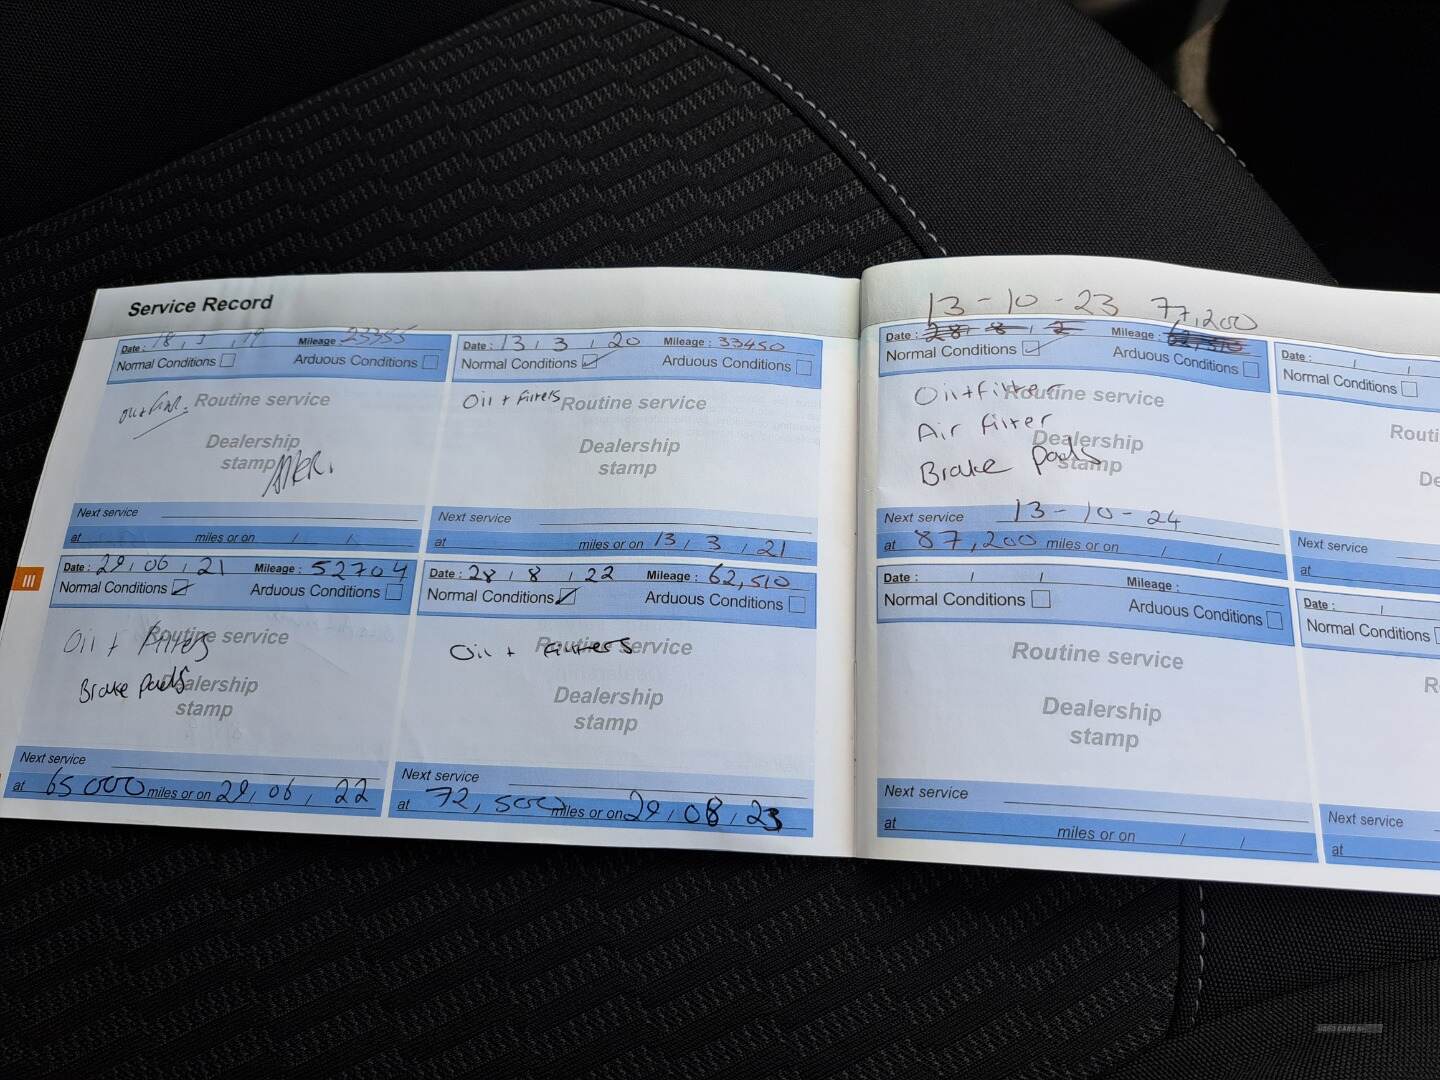 Service Record
Date : 18 , 3 , 19 Mileage : 23355
Normal Conditions Arduous Conditions
Routine service
Dealership
stamp
Next service
at miles or on / /
Date : 13 , 3 , 20 Mileage : 33450
Normal Conditions Arduous Conditions
Oil + Filters Routine service
Dealership
stamp
Next service
at miles or on 13 , 3 , 21
III
Date : 29 , 06 , 21 Mileage : 52704
Normal Conditions Arduous Conditions
Oil + Filters Routine service
Brake pads Dealership
stamp
Next service
at 65000 miles or on 29 , 06 , 22
Date : 28 , 8 , 22 Mileage : 62,510
Normal Conditions Arduous Conditions
Oil + Filters Routine service
Dealership
stamp
Next service
at 72,500 miles or on 29 , 08 , 23
13 - 10 - 23 77,200
Date : 28 , 8 , 2 Mileage :
Normal Conditions Arduous Conditions
Oil + filter Routine service
Air filter
Dealership
Brake pads stamp
Next service 13 - 10 - 24
at 87,200 miles or on / /
Date : / / Mileage :
Normal Conditions Arduous Conditions
Routine service
Dealership
stamp
Next service
at miles or on / /
Date : / /
Normal Conditions
Routi
De
Next service
at
Date : /
Normal Conditions
R
Next service
at